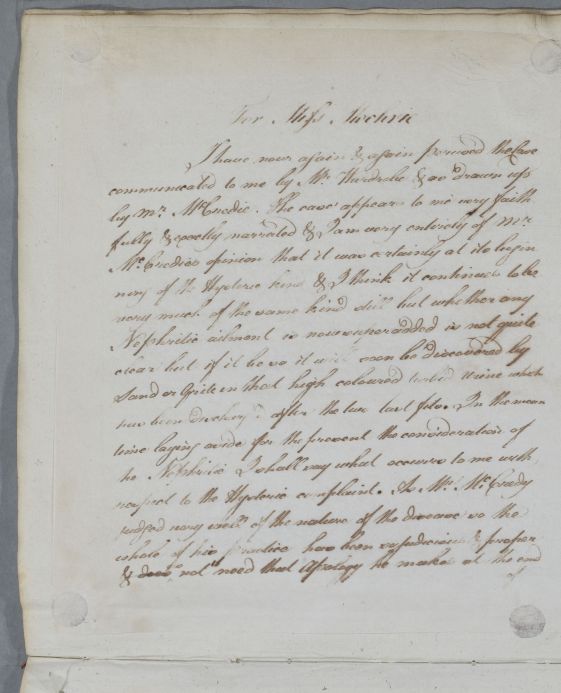 For Miss Mechrie
I have now again & again perused the Case
communicated to me by Mr. & so drawn up
by Mr. McCredie. The case appears to me very faith
fully & exactly narrated & I am very entirely of Mr.
McCredies opinion that it was certainly at its begin
ning of the Hysteric kind & I think it continues to be
very much of the same kind still but whether any
Nephritic ailment is now superadded is not quite
clear but if it be so it will soon be discovered by
Sand or Grile in that high coloured urine which
has been discharg'd after the two last fits. In the mean
time laying aside for the present the consideration of
the Nephritic I shall say what occurrs to me with
respect to the Hysteric complaint. As Mr. McCrady
judged very well of the nature of the disease so the
whole of his practice has been so judicious & proper
& does not need that Apology he makes at the end
of